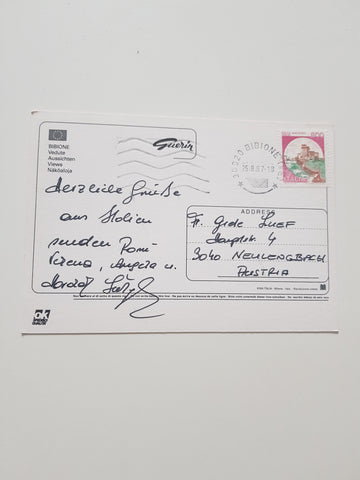 BIBIONE
Vedute
Aussichten
Views
Näköaloja
Guerin
30020 BIBIONE
25.8.97-18
800
Herzliche Grüße
aus Italien
senden Romi
Verena, Angela u.
ADDRESS
Fr. Grete LUEF
Hauptstr. 4
3040 NEULENGBACH
AUSTRIA
ok